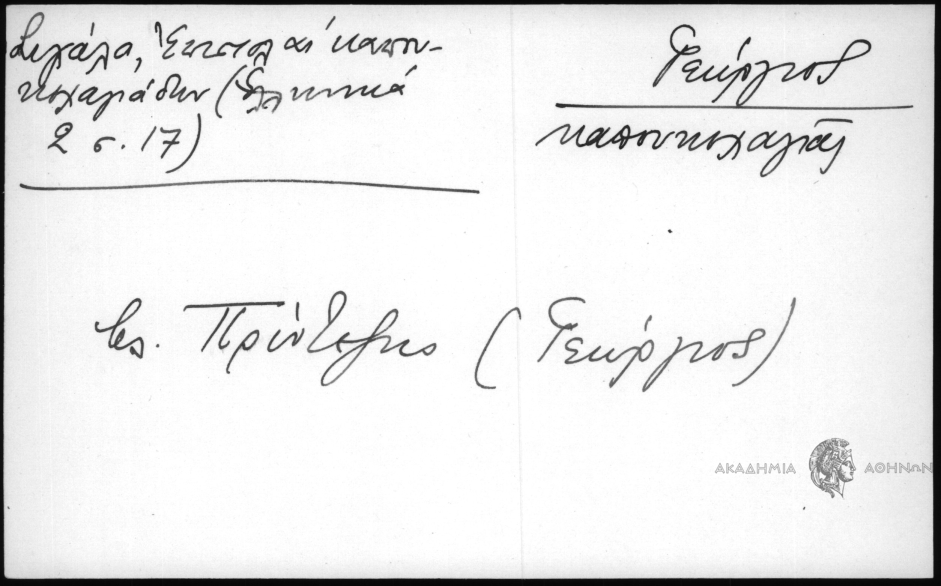 Σιγάλα, Ἐπιστολαί καπου-
κεχαγιάδων (Ἑλληνικά
2 σ. 17)
Γεώργιος
καπουκεχαγιᾶς
βλ. Πρίντεζης (Γεώργιος)
ΑΚΑΔΗΜΙΑ ΑΘΗΝΩΝ